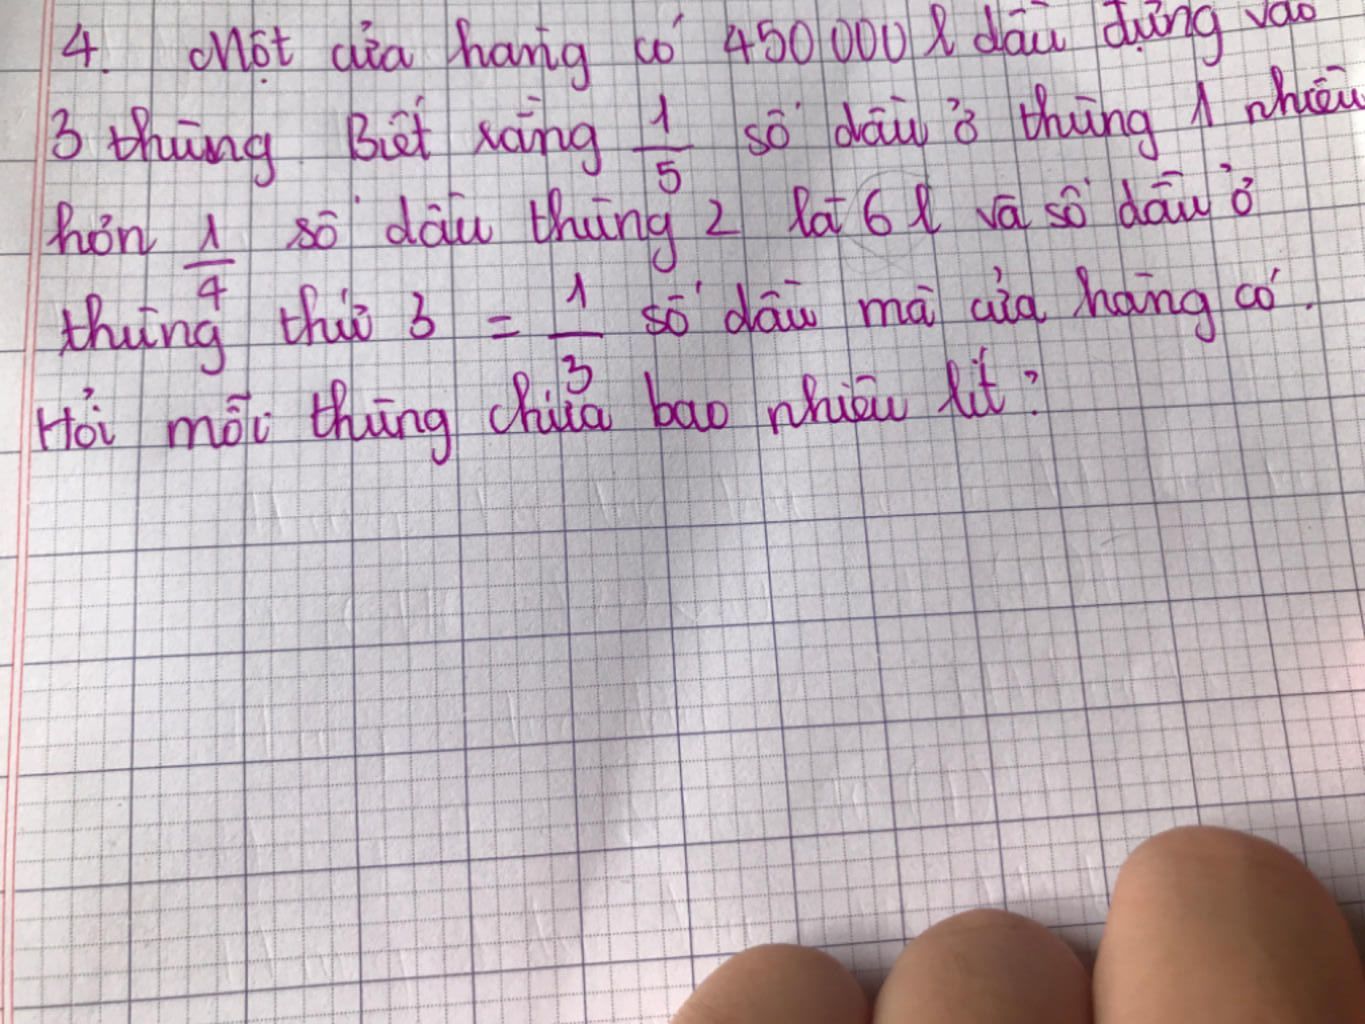 4. Một cửa hàng có 450 000 l dầu đựng vào
3 thùng. Biết rằng 1/5 số dầu ở thùng 1 nhiều
hơn 1/4 số dầu thùng 2 là 6 l và số dầu ở
thùng thứ 3 = 1/3 số dầu mà cửa hàng có.
Hỏi mỗi thùng chứa bao nhiêu lít?